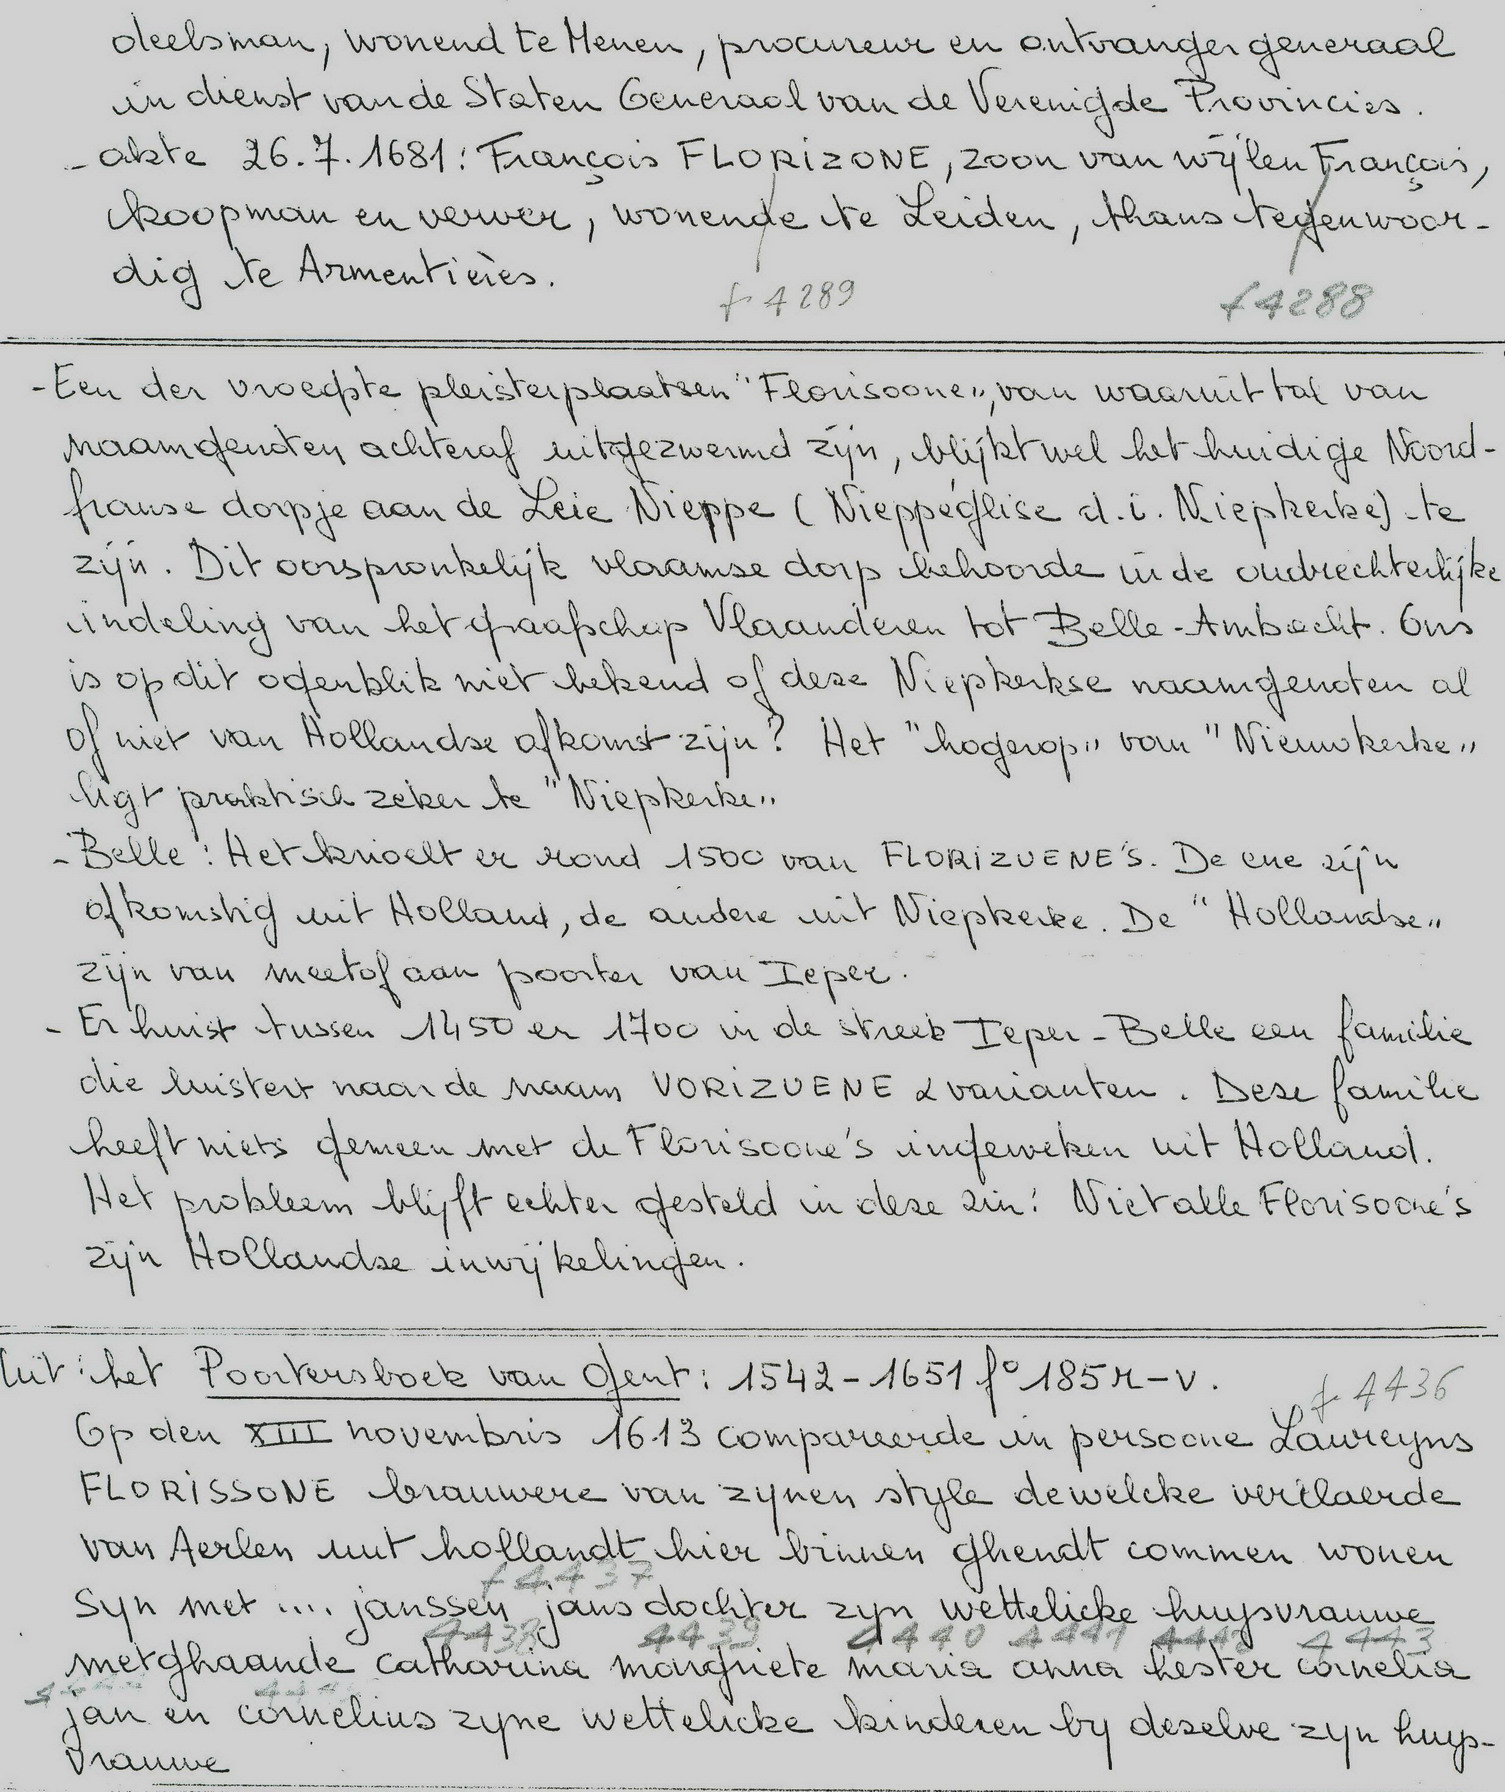 deelsman, wonend te Menen, procureur en ontvanger generaal
in dienst van de Staten Generaal van de Verenigde Provincies.
- akte 26.7.1681: François FLORIZONE, zoon van wijlen François,
koopman en verver, wonende te Leiden, thans tegenwoor-
dig te Armentières.
f 4289 f 4288
- Een der vroegste pleisterplaatsen "Florisoone", van waaruit tal van
naamgenoten achteraf uitgezwermd zijn, blijkt wel het huidige Noord-
franse dorpje aan de Leie Nieppe (Nieppéglise d.i. Niepkerke) te
zijn. Dit oorspronkelijk vlaamse dorp behoorde in de oudrechterlijke
indeling van het graafschap Vlaanderen tot Belle-Ambacht. Ons
is op dit ogenblik niet bekend of deze Niepkerkse naamgenoten al
of niet van Hollandse afkomst zijn? Het "hogerop" van "Nieuwkerke"
ligt praktisch zeker te "Niepkerke"
- Belle: Het krioelt er rond 1500 van FLORIZUENE'S. De ene zijn
afkomstig uit Holland, de andere uit Niepkerke. De "Hollandse"
zijn van meetof aan poorter van Ieper.
- Er huist tussen 1450 en 1700 in de streek Ieper-Belle een familie
die luistert naar de naam VORIZUENE & varianten. Deze familie
heeft niets gemeen met de Florisoone's ingeweken uit Holland.
Het probleem blijft echter gesteld in deze zin: Niet alle Florisoone's
zijn Hollandse inwijkelingen.
Uit het Poortersboek van Gent: 1542-1651 f° 185 r-v.
f 4436
Op den XIII novembris 1613 compareerde in persoone Laureyns
FLORISSONE brauwere van zynen style dewelcke verclaerde
van Aerlen uut hollandt hier binnen ghendt commen wonen
f 4437
Syn met .... janssen jans dochter zyn wettelicke huysvrauwe
4438 4439 4440 4441 4443
metghaande catharina margriete maria anna hester cornelia
jan en cornelius zyne wettelicke kinderen by deselve zyn huys-
vrauwe